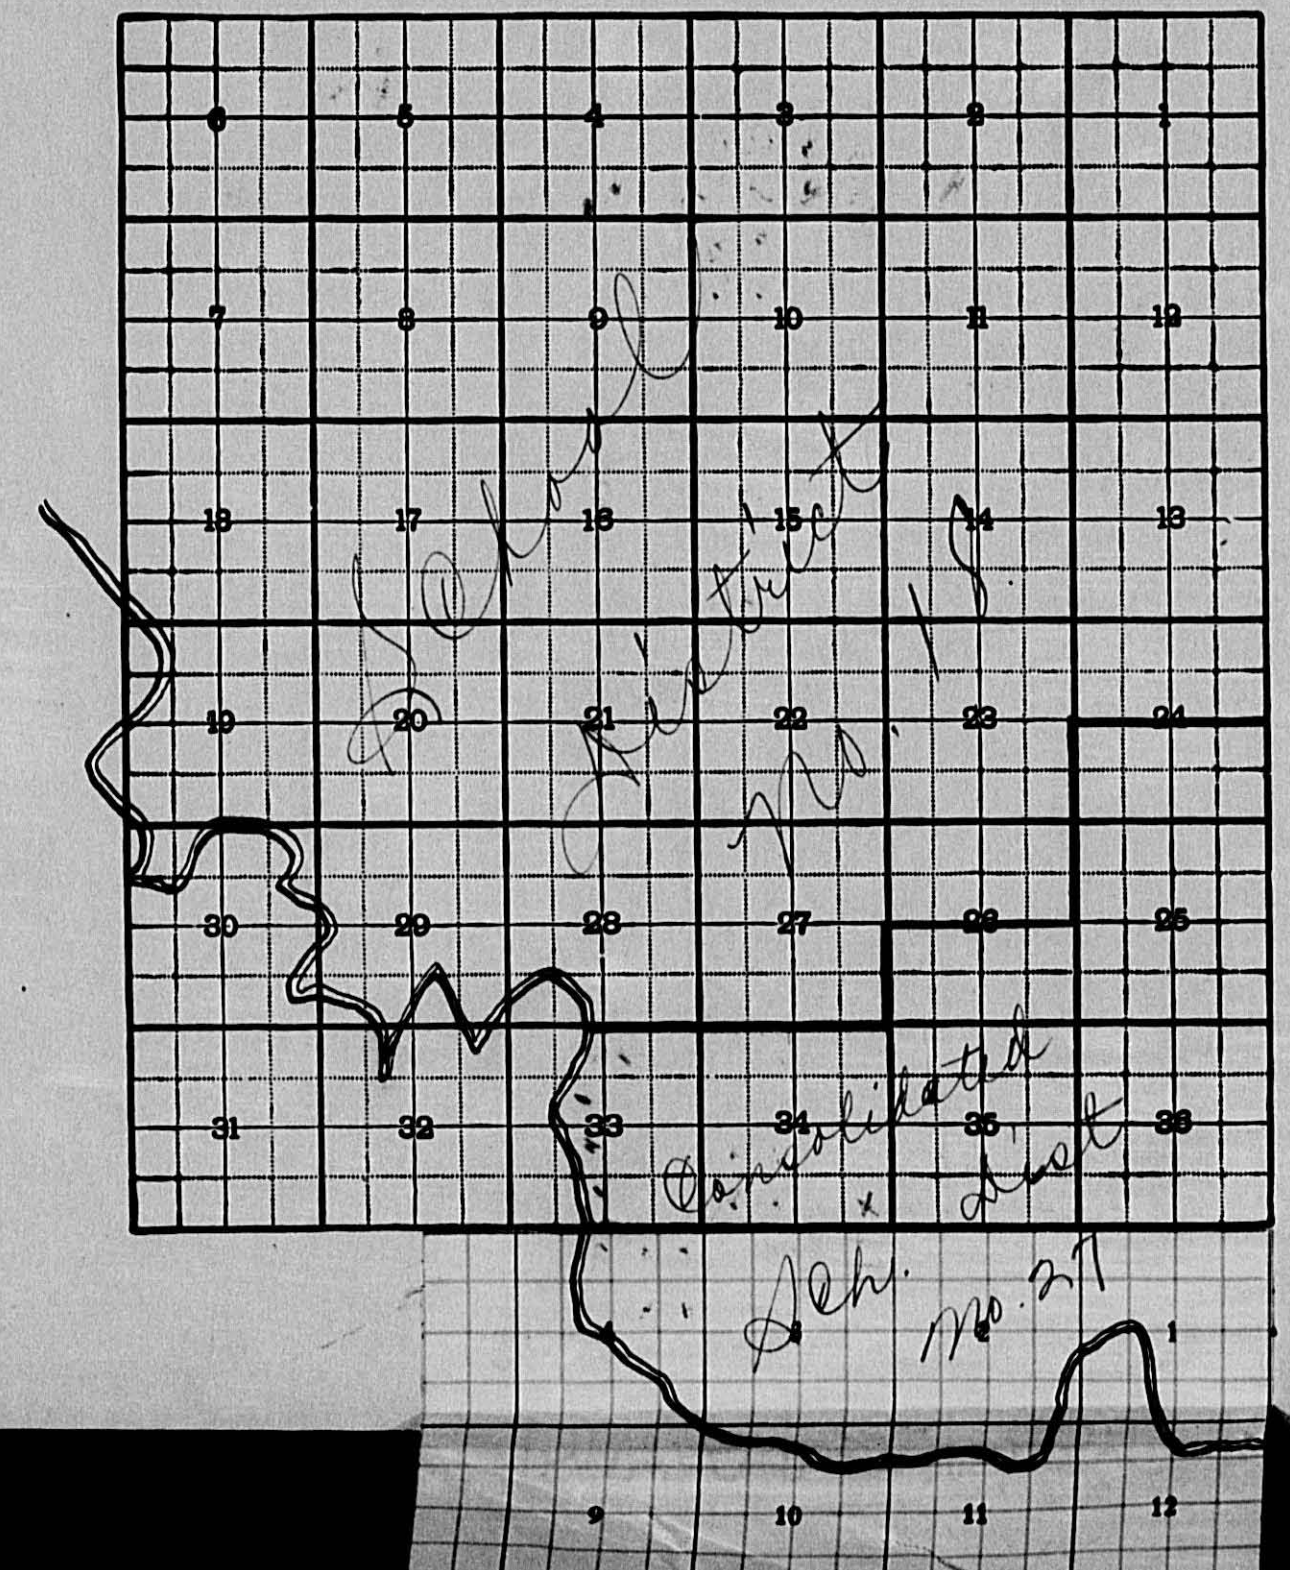 6 5 4 3 2 1
7 8 9 10 11 12
18 17 16 15 14 13
19 20 21 22 23 24
30 29 28 27 26 25
31 32 33 34 35 36
School
District
No. 18.
Consolidated
Dist
Sch. No. 27
4 3 2 1
9 10 11 12